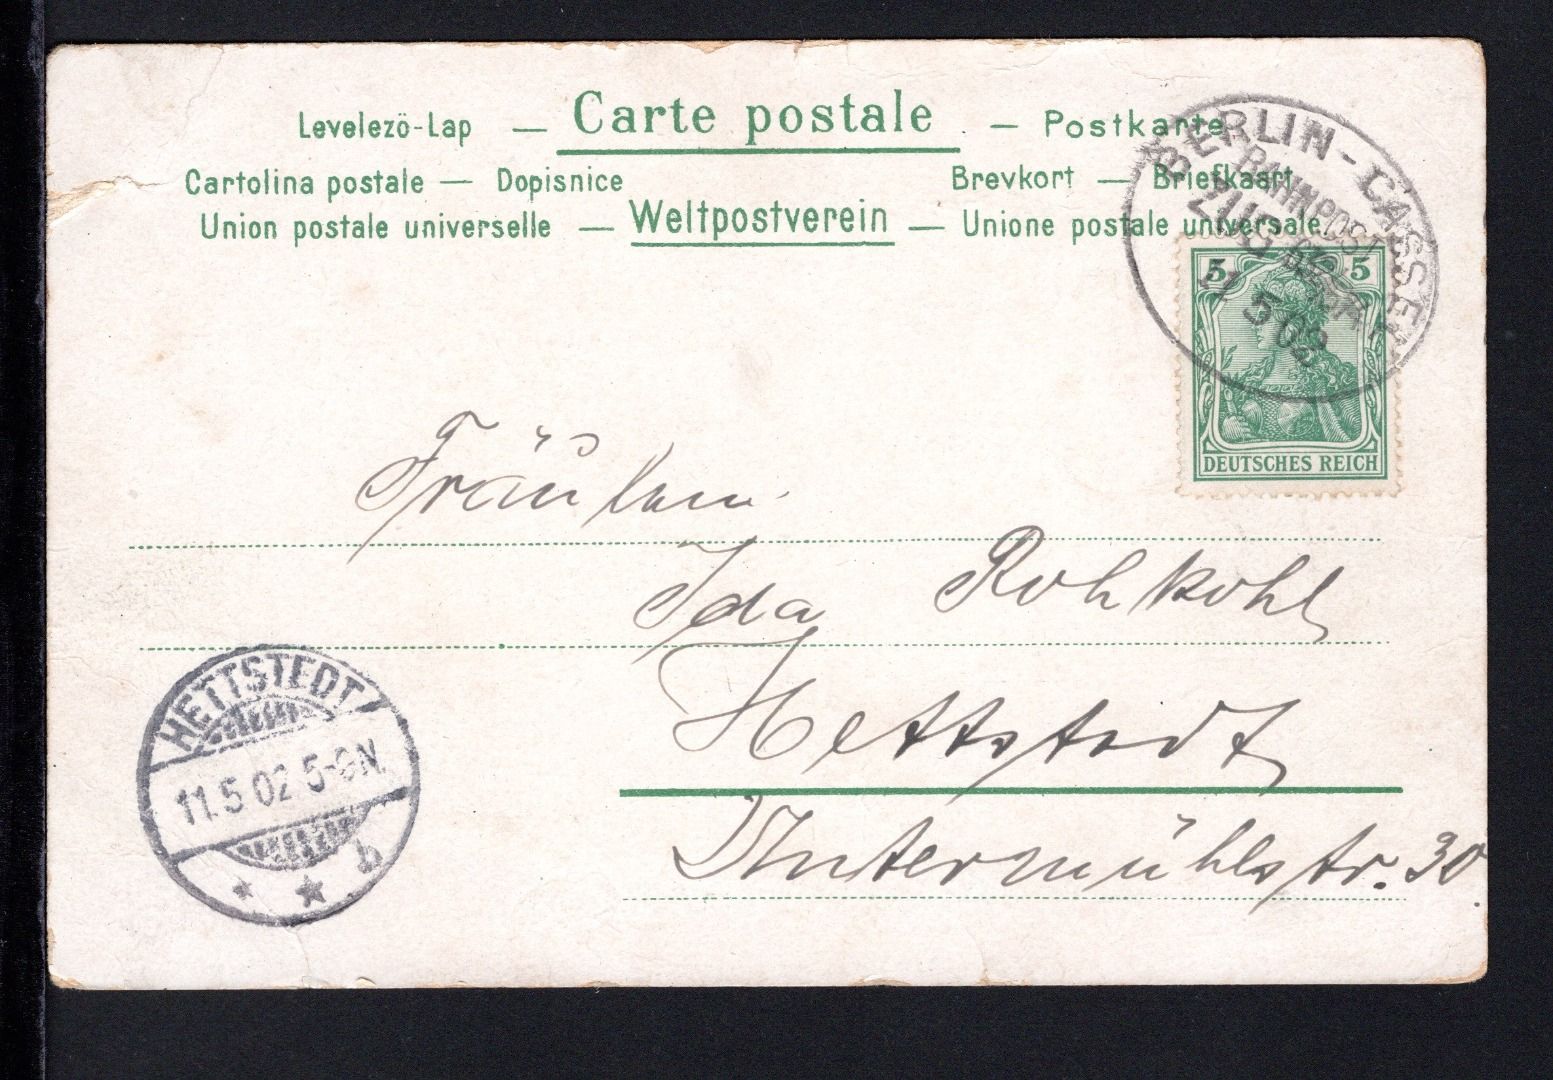 Levelezö-Lap — Carte postale — Postkarte
Cartolina postale — Dopisnice Brevkort — Briefkaart
Union postale universelle — Weltpostverein — Unione postale universale
BERLIN - CASSEL
BAHNPOST
ZUG
11 5 02
5 5
DEUTSCHES REICH
Fräulein
Ida Rohkohl
Hettstedt
Untermühlstr. 30.
HETTSTEDT
11.5 02 5-6N.
b